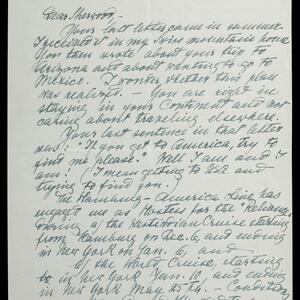 Dear Sherwood,
Your last letter came in summer.
I received it in my mountain house.
You then wrote about your trip to
Arizona and about wanting to go to
Mexico. I wonder whether this plan
was realized. – You are right in
staying in your Continent and not
caring about traveling elsewhere.
Your last sentence in that letter
was: "If you get to America, try to
find me please." Well I am and I
am! (I mean getting to USA and
trying to find you.)
The Hamburg–America Line has
engaged me as Hostess for the Reliance
during a) the West Indian Cruise starting
from Hamburg on Dec. 6, and ending
in New York on Jan. 6, and
b) the World Cruise, starting
in New York Jan. 10, and ending
in New York May 25th. – Condition